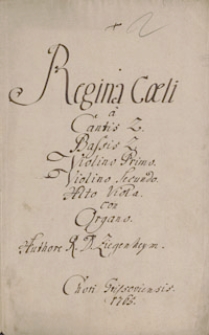 Regina Cœli
à
Cantis 2.
Bassis 2.
Violino Primo.
Violino Secundo.
Alto Viola.
con
Organo.
Authore R. D.
Chori
1765.